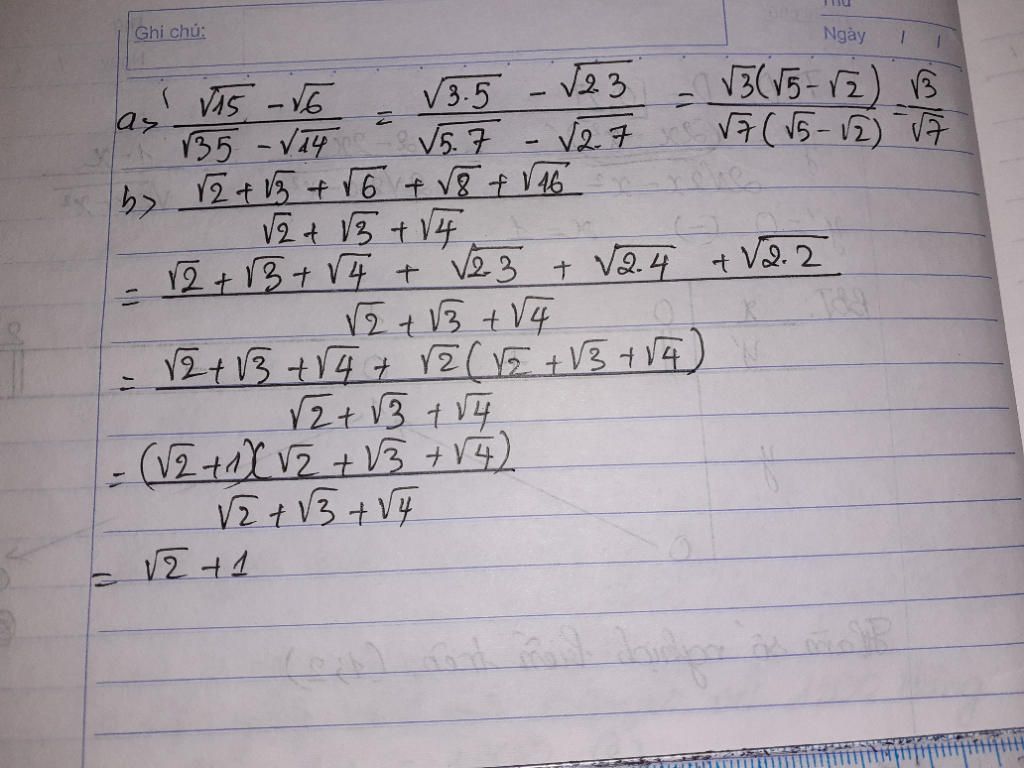 Thứ
Ghi chú:
Ngày / /
a> (√15 - √6)/(√35 - √14) = (√3.5 - √2.3)/(√5.7 - √2.7) = √3(√5 - √2)/√7(√5 - √2) = √3/√7
b> (√2 + √3 + √6 + √8 + √16)/(√2 + √3 + √4)
= (√2 + √3 + √4 + √2.3 + √2.4 + √2.2)/(√2 + √3 + √4)
= (√2 + √3 + √4 + √2(√2 + √3 + √4))/(√2 + √3 + √4)
= (√2 + 1)(√2 + √3 + √4)/(√2 + √3 + √4)
= √2 + 1